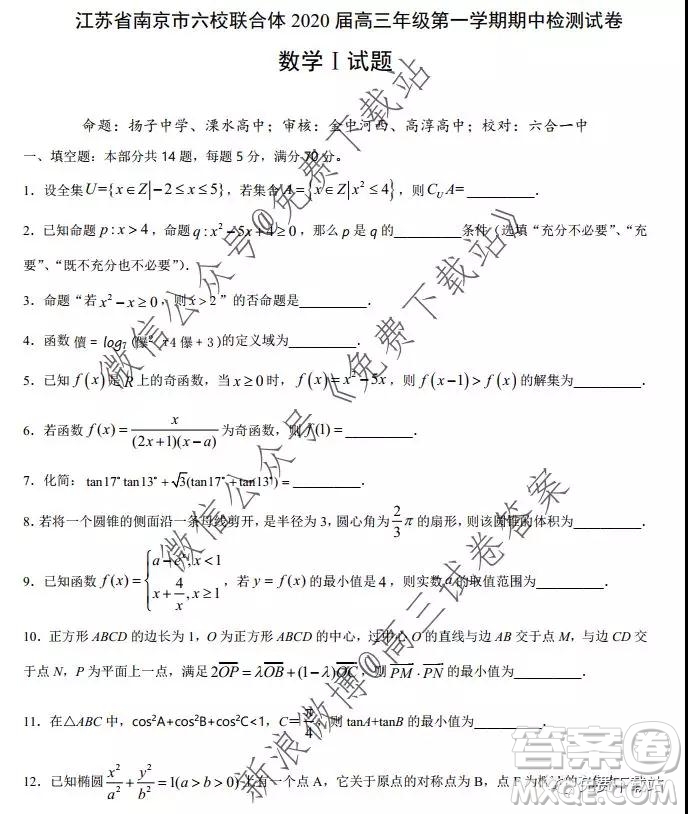 江苏省南京市六校联合体 2020 届高三年级第一学期期中检测试卷
数学 I 试题
命题：扬子中学、溧水高中；审核：金中河西、高淳高中；校对：六合一中
一、填空题：本部分共 14 题，每题 5 分，满分 70 分。
1．设全集U={x∈Z|−2≤x≤5}，若集合A={x∈Z|x²≤4}，则C_U A=_________．
2．已知命题 p:x>4，命题 q:x²−5x+4≥0，那么 p 是 q 的_________条件（选填“充分不必要”、“充
要”、“既不充分也不必要”）．
3．命题“若 x²−x≥0，则 x>2”的否命题是_________．
4．函数 = log₇ ( 4 + 3)的定义域为_________．
5．已知 f(x)是 R 上的奇函数，当 x≥0 时，f(x)=x²−5x，则 f(x−1)>f(x) 的解集为_________．
6．若函数 f(x)=x/((2x+1)(x−a)) 为奇函数，则 f(1)=_________．
7．化简：tan17°tan13°+√3(tan17°+tan13°)=_________．
8．若将一个圆锥的侧面沿一条母线剪开，是半径为 3，圆心角为 2/3 π 的扇形，则该圆锥的体积为_________．
9．已知函数 f(x)={a−eˣ, x<1; x+4/x, x≥1，若 y=f(x) 的最小值是 4，则实数 a 的取值范围为_________．
10．正方形 ABCD 的边长为 1，O 为正方形 ABCD 的中心，过中心 O 的直线与边 AB 交于点 M，与边 CD 交
于点 N，P 为平面上一点，满足 2OP=λOB+(1−λ)OC，则 PM·PN 的最小值为_________．
11．在△ABC 中，cos²A+cos²B+cos²C<1，C=π/4，则 tanA+tanB 的最小值为_________．
12．已知椭圆 x²/a²+y²/b²=1(a>b>0)上有一个点 A，它关于原点的对称点为 B，点 F 为椭
微信公众号@免费下载站
微信公众号《免费下载站》
新浪微博@高三试卷答案
答案圈
免费下载站